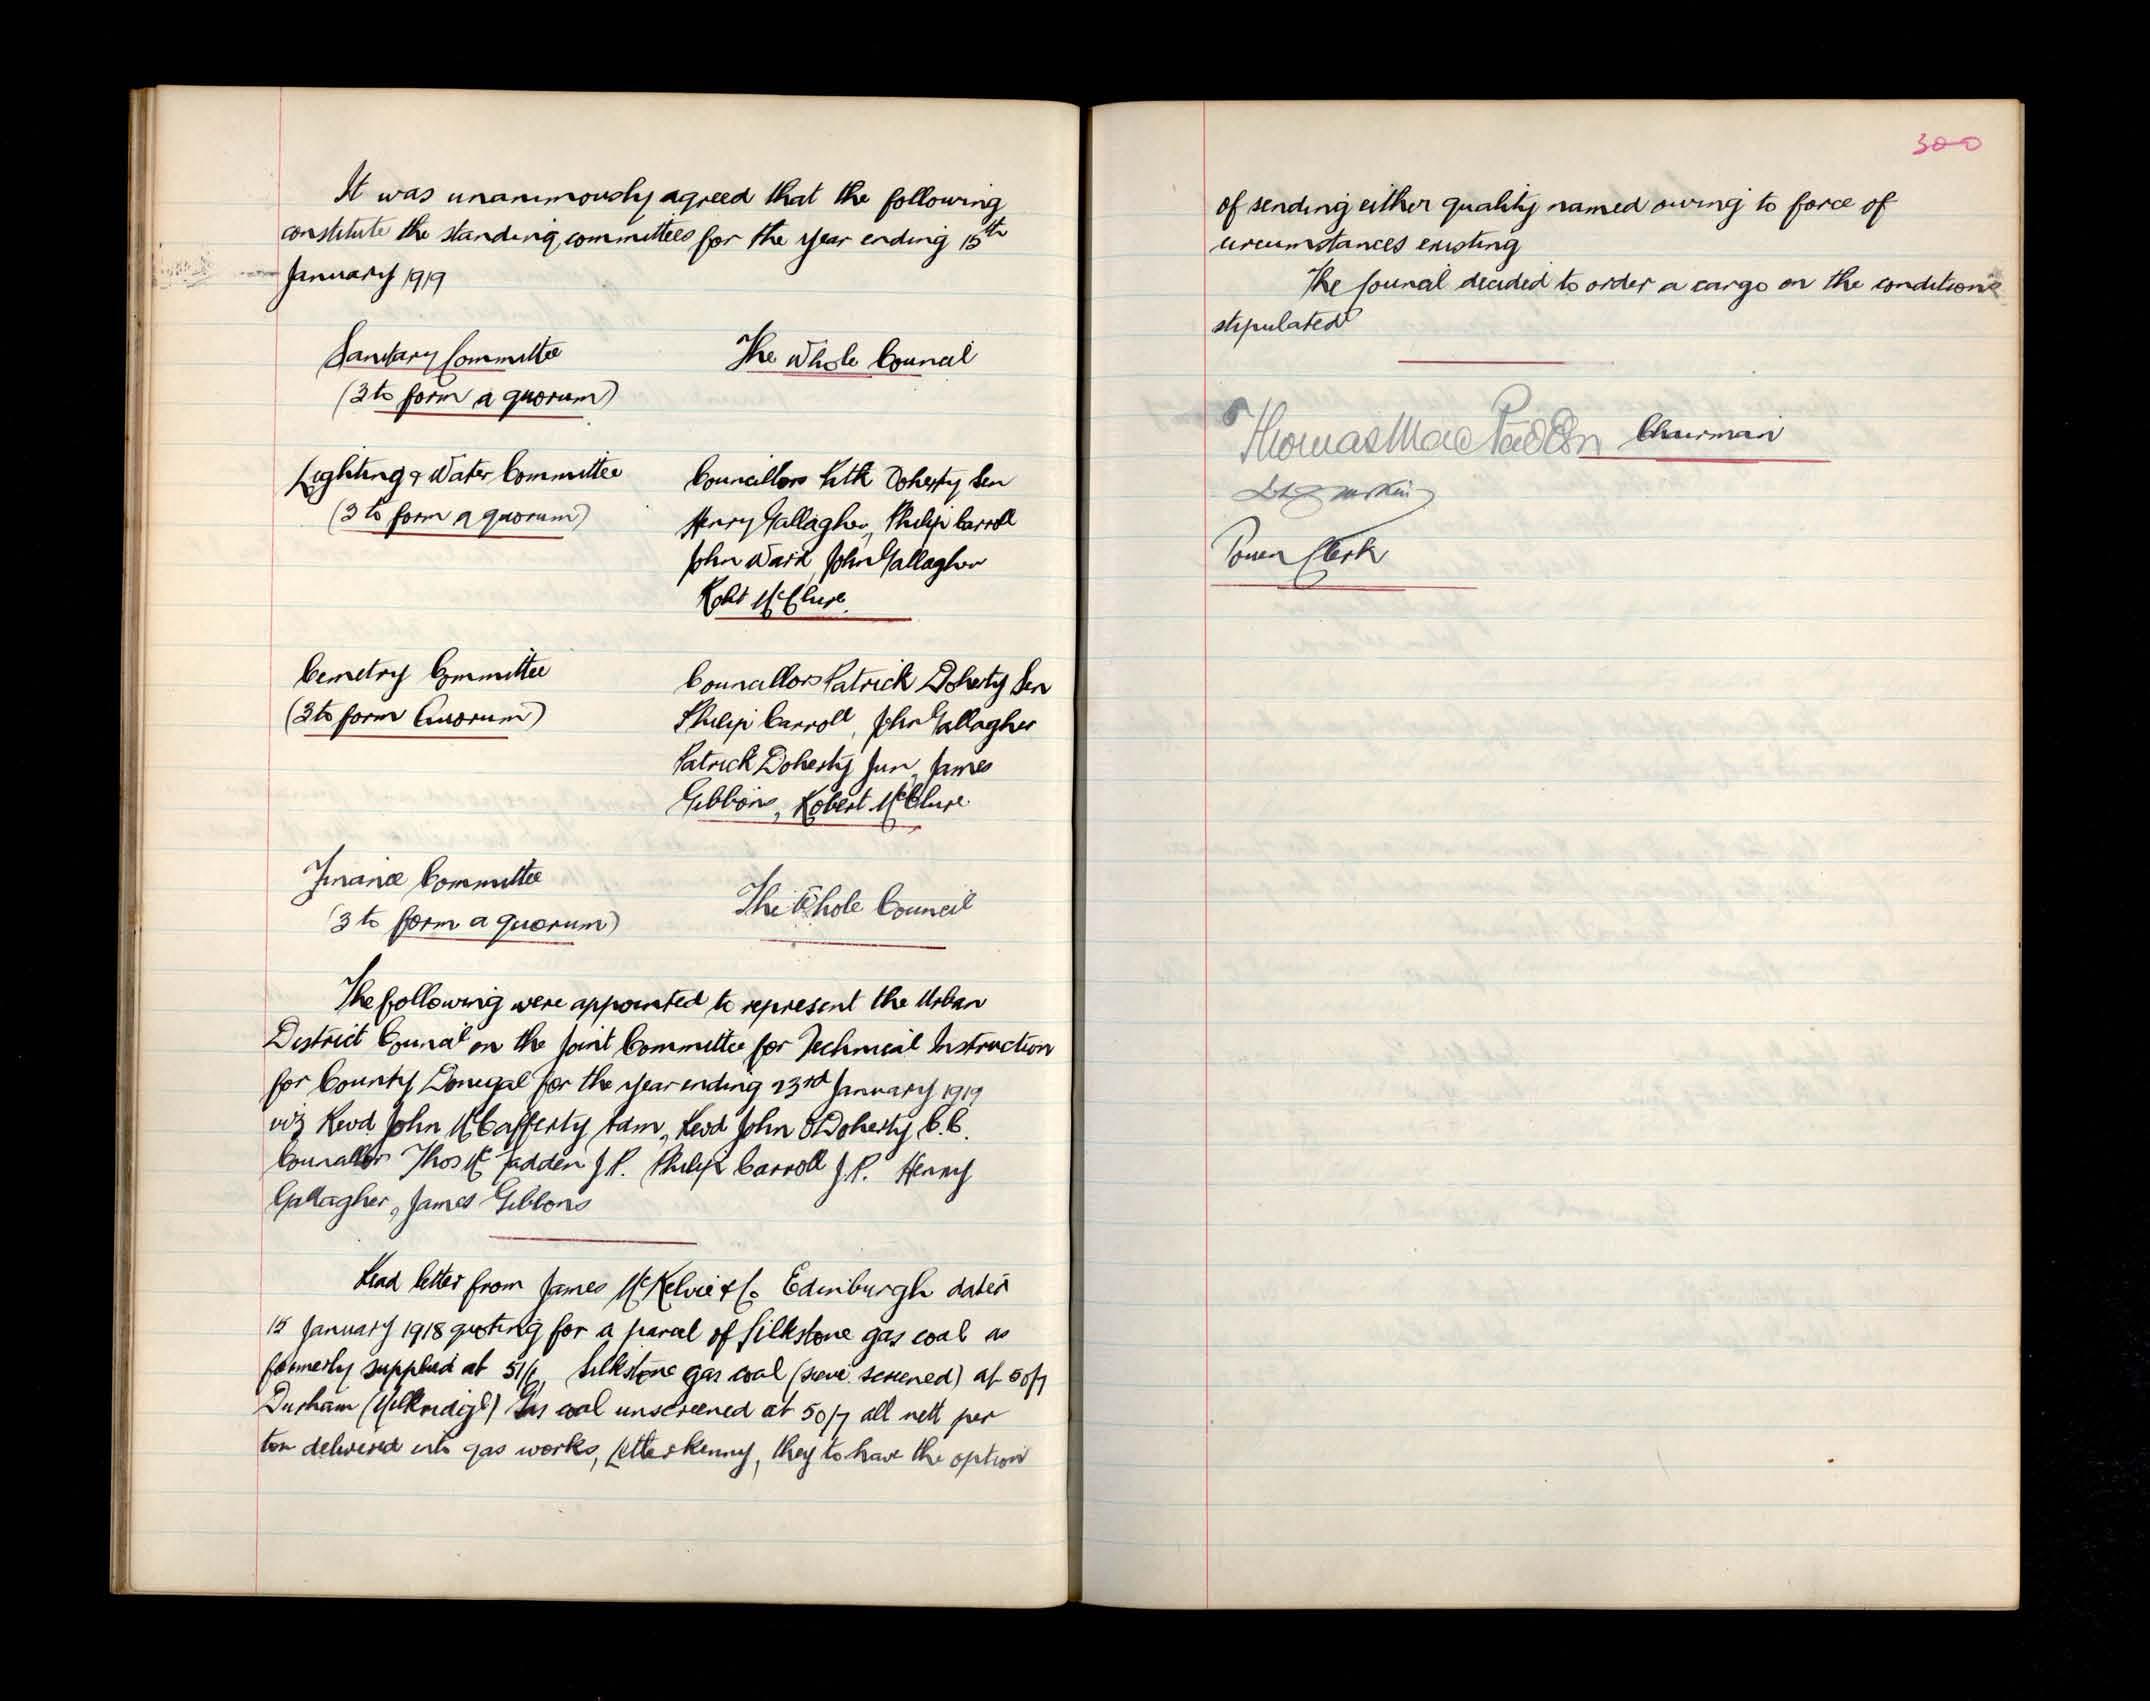 It was unanimously agreed that the following
constitute the standing committees for the year ending 15th
January 1919
Sanitary Committee
The Whole Council
(3 to form a quorum)
Lighting & Water Committee
(3 to form a quorum)
Councillors Patk Doherty Sen
Henry Gallagher, Philip Carroll
John Ward, John Gallagher
Robt McClure.
Cemetry Committee
(3 to form Quorum)
Councallors Patrick Doherty Sen
Philip Carroll, John Gallagher
Patrick Doherty Jun, James
Gibbons, Robert McClure
Finance Committee
(3 to form a quorum)
The Whole Council
The following were appointed to represent the Urban
District Council on the Joint Committee for Technical Instruction
for County Donegal for the year ending 23rd January 1919
viz Revd John McCafferty Adm, Revd John O'Doherty C.C.
Councallors Thos Mc Fadden J.P. Philip Carroll J.P. Henry
Gallagher, James Gibbons
Read letter from James McKelvie & Co Edinburgh dated
15 January 1918 quoting for a parcel of Silkstone gas coal as
formerly supplied at 51/6, Silkstone gas coal (screened) at 50/7
Durham Gas coal unscreened at 50/7 all nett per
ton delivered into gas works, Letterkenny, they to have the option
300
of sending either quality named owing to force of
circumstances existing
The Council decided to order a cargo on the conditions
stipulated
Thomas Mac Fadden Chairman
Town Clerk